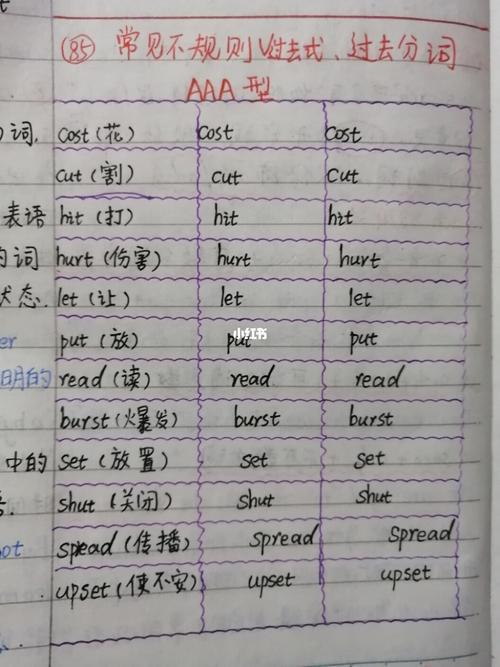 t
85 常见不规则V过去式、过去分词
AAA型
词. cost (花) cost cost
cut (割) cut cut
表语 hit (打) hit hit
的词 hurt (伤害) hurt hurt
状态. let (让) let let
er put (放) put put
明的 read (读) read read
burst (爆发) burst burst
中的 set (放置) set set
shut (关闭) shut shut
ot spread (传播) spread spread
upset (使不安) upset upset
小红书